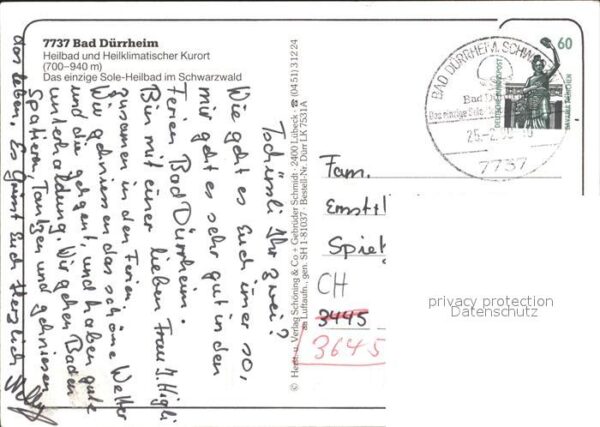 7737 Bad Dürrheim
Heilbad und Heilklimatischer Kurort
(700–940 m)
Das einzige Sole-Heilbad im Schwarzwald
Tschüssli Ihr zwei?
Wie geht es Euch imer so,
mir geht es sehr gut in den
Ferien Bad Dürrheim.
Bin mit einer lieben Frau J. Higli
zusamen in den Ferien.
Wir geniessen das schöne Wetter
und die gegent, und haben gute
unterhaldung. Wir gehen Baden
Spatieren, Tantzen und geniessen
das leben. Es Grüsst Euch Herzlich
© Herst. u. Verlag Schöning & Co + Gebrüder Schmidt · 2400 Lübeck ☎ (0451) 31224
Luftaufn., gen. SH 1-81037 · Bestell-Nr. Dürr LK 7531A
BAD DÜRRHEIM, SCHW
Bad Dürrheim
Das einzige Sole-
25.-2.
7737
60
DEUTSCHE BUNDESPOST
BAVARIA MÜNCHEN
Fam.
Ernst
Spiet
CH
3445
3645
privacy protection
Datenschutz